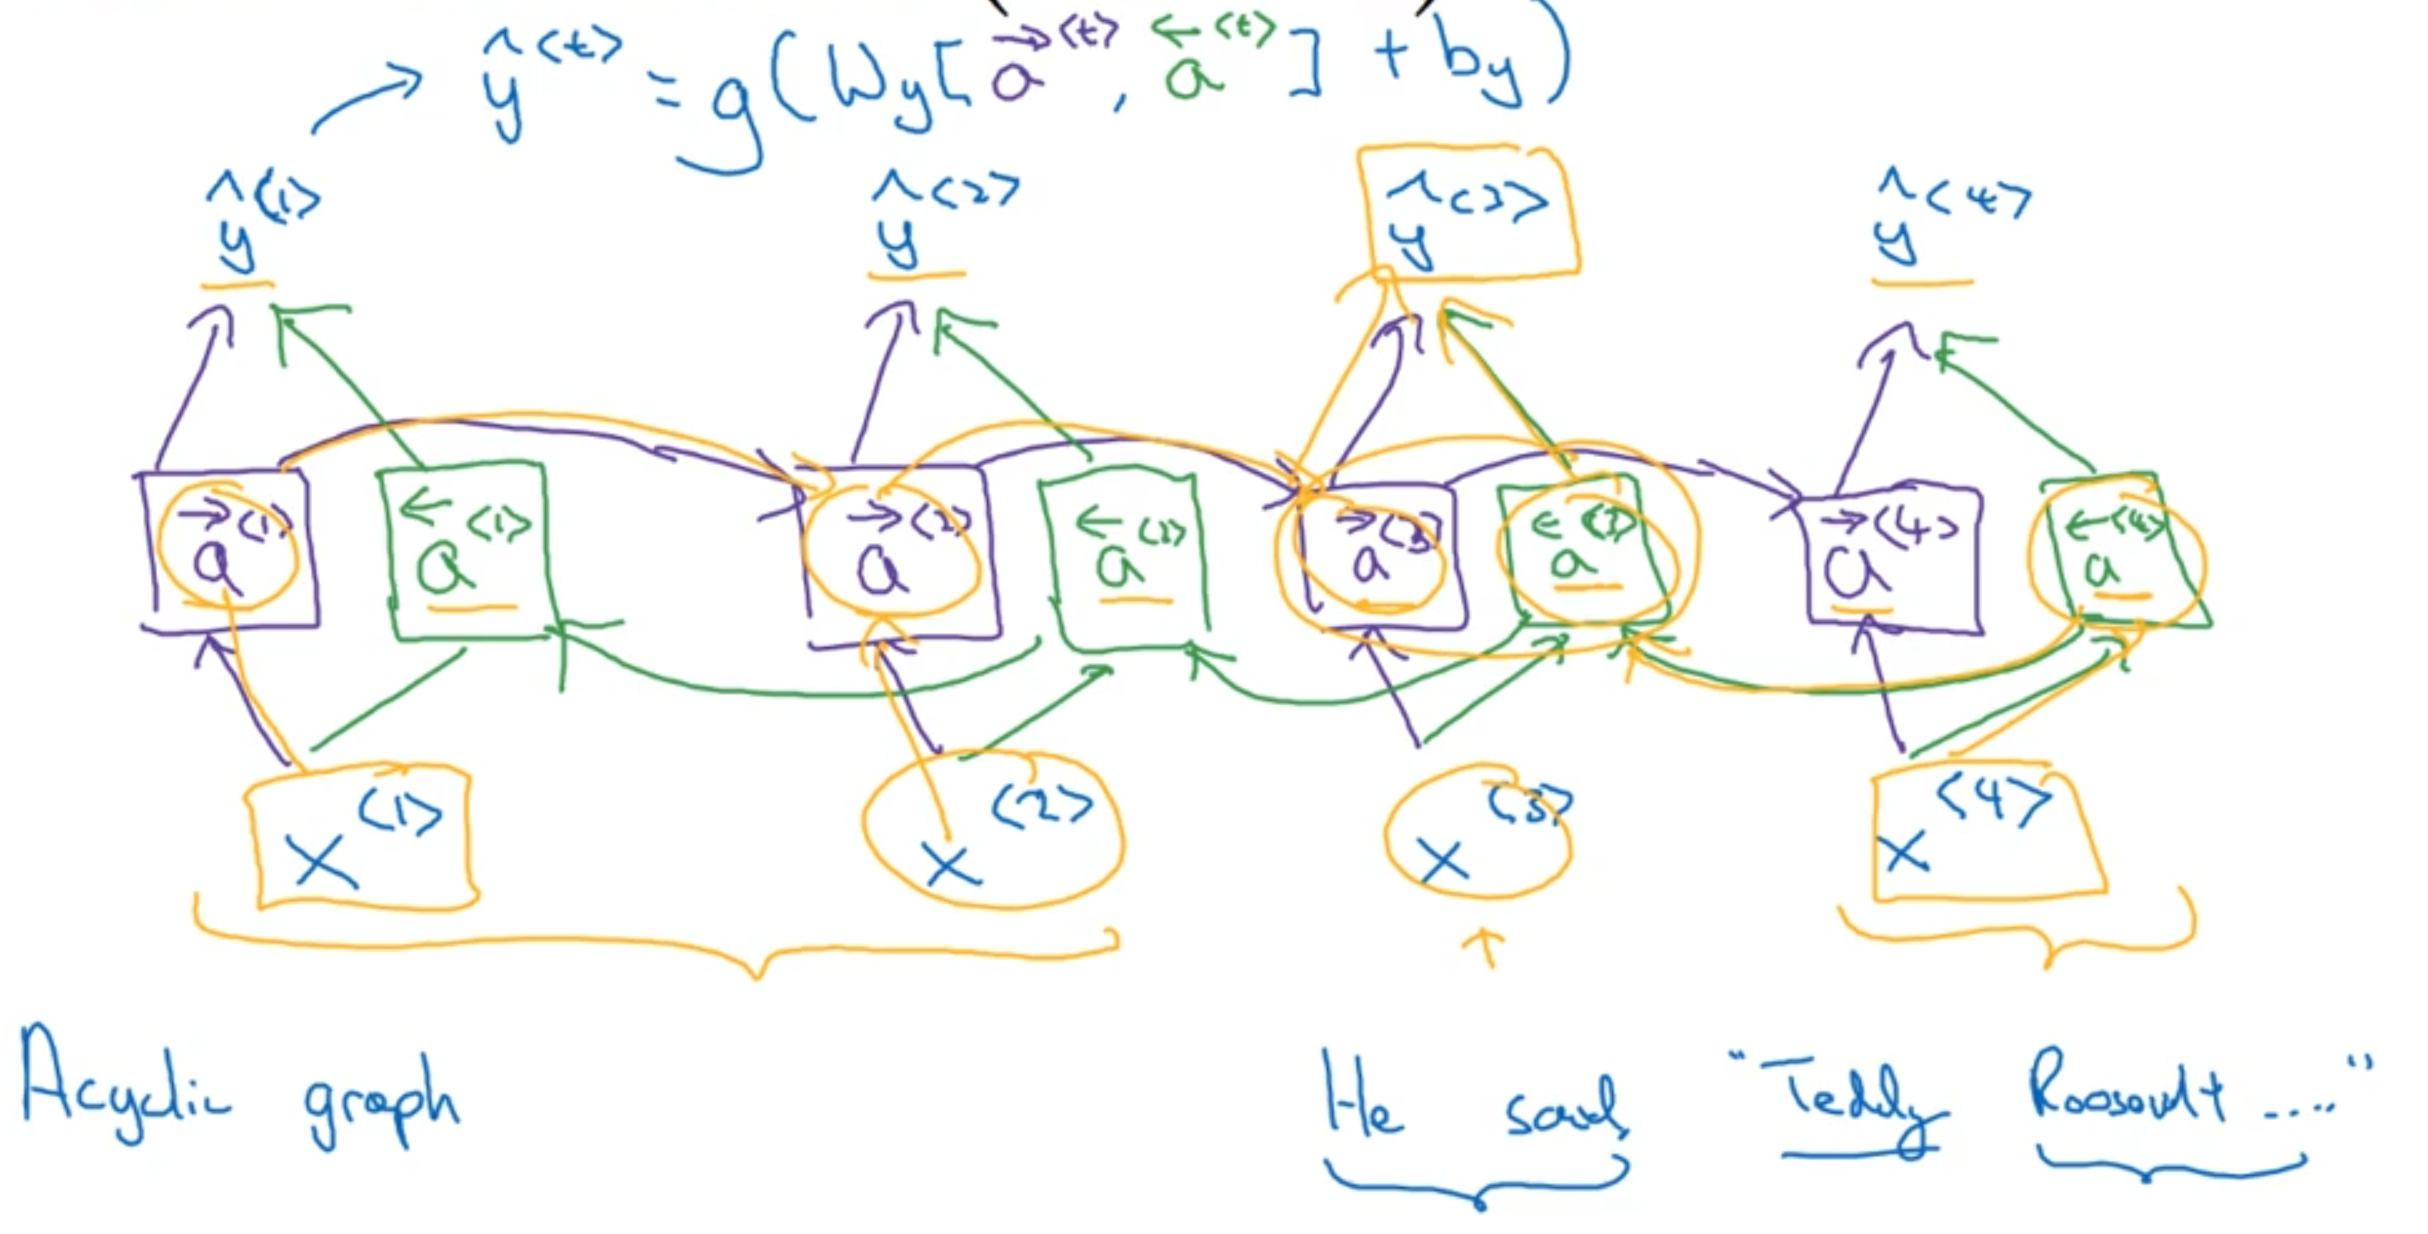 ŷ<t> = g(Wy[a→<t>, a←<t>] + by)
ŷ<1> ŷ<2> ŷ<3> ŷ<4>
a→<1> a←<1> a→<2> a←<2> a→<3> a←<3> a→<4> a←<4>
x<1> x<2> x<3> x<4>
Acyclic graph He said, "Teddy Roosevelt ...."